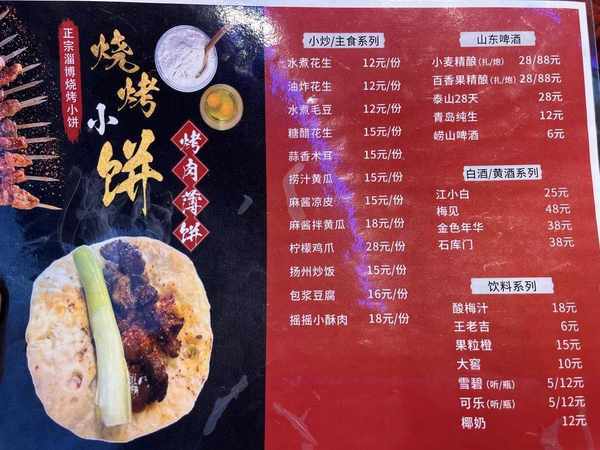 正宗淄博烧烤小饼
烧烤
小
饼
烤肉薄饼
小炒/主食系列
水煮花生 12元/份
油炸花生 12元/份
水煮毛豆 12元/份
糖醋花生 15元/份
蒜香木耳 15元/份
捞汁黄瓜 15元/份
麻酱凉皮 15元/份
麻酱拌黄瓜 18元/份
柠檬鸡爪 28元/份
扬州炒饭 15元/份
包浆豆腐 16元/份
摇摇小酥肉 18元/份
山东啤酒
小麦精酿(扎/炮) 28/88元
百香果精酿(扎/炮) 28/88元
泰山28天 28元
青岛纯生 12元
崂山啤酒 6元
白酒/黄酒系列
江小白 25元
梅见 48元
金色年华 38元
石库门 38元
饮料系列
酸梅汁 18元
王老吉 6元
果粒橙 15元
大窑 10元
雪碧(听/瓶) 5/12元
可乐(听/瓶) 5/12元
椰奶 12元